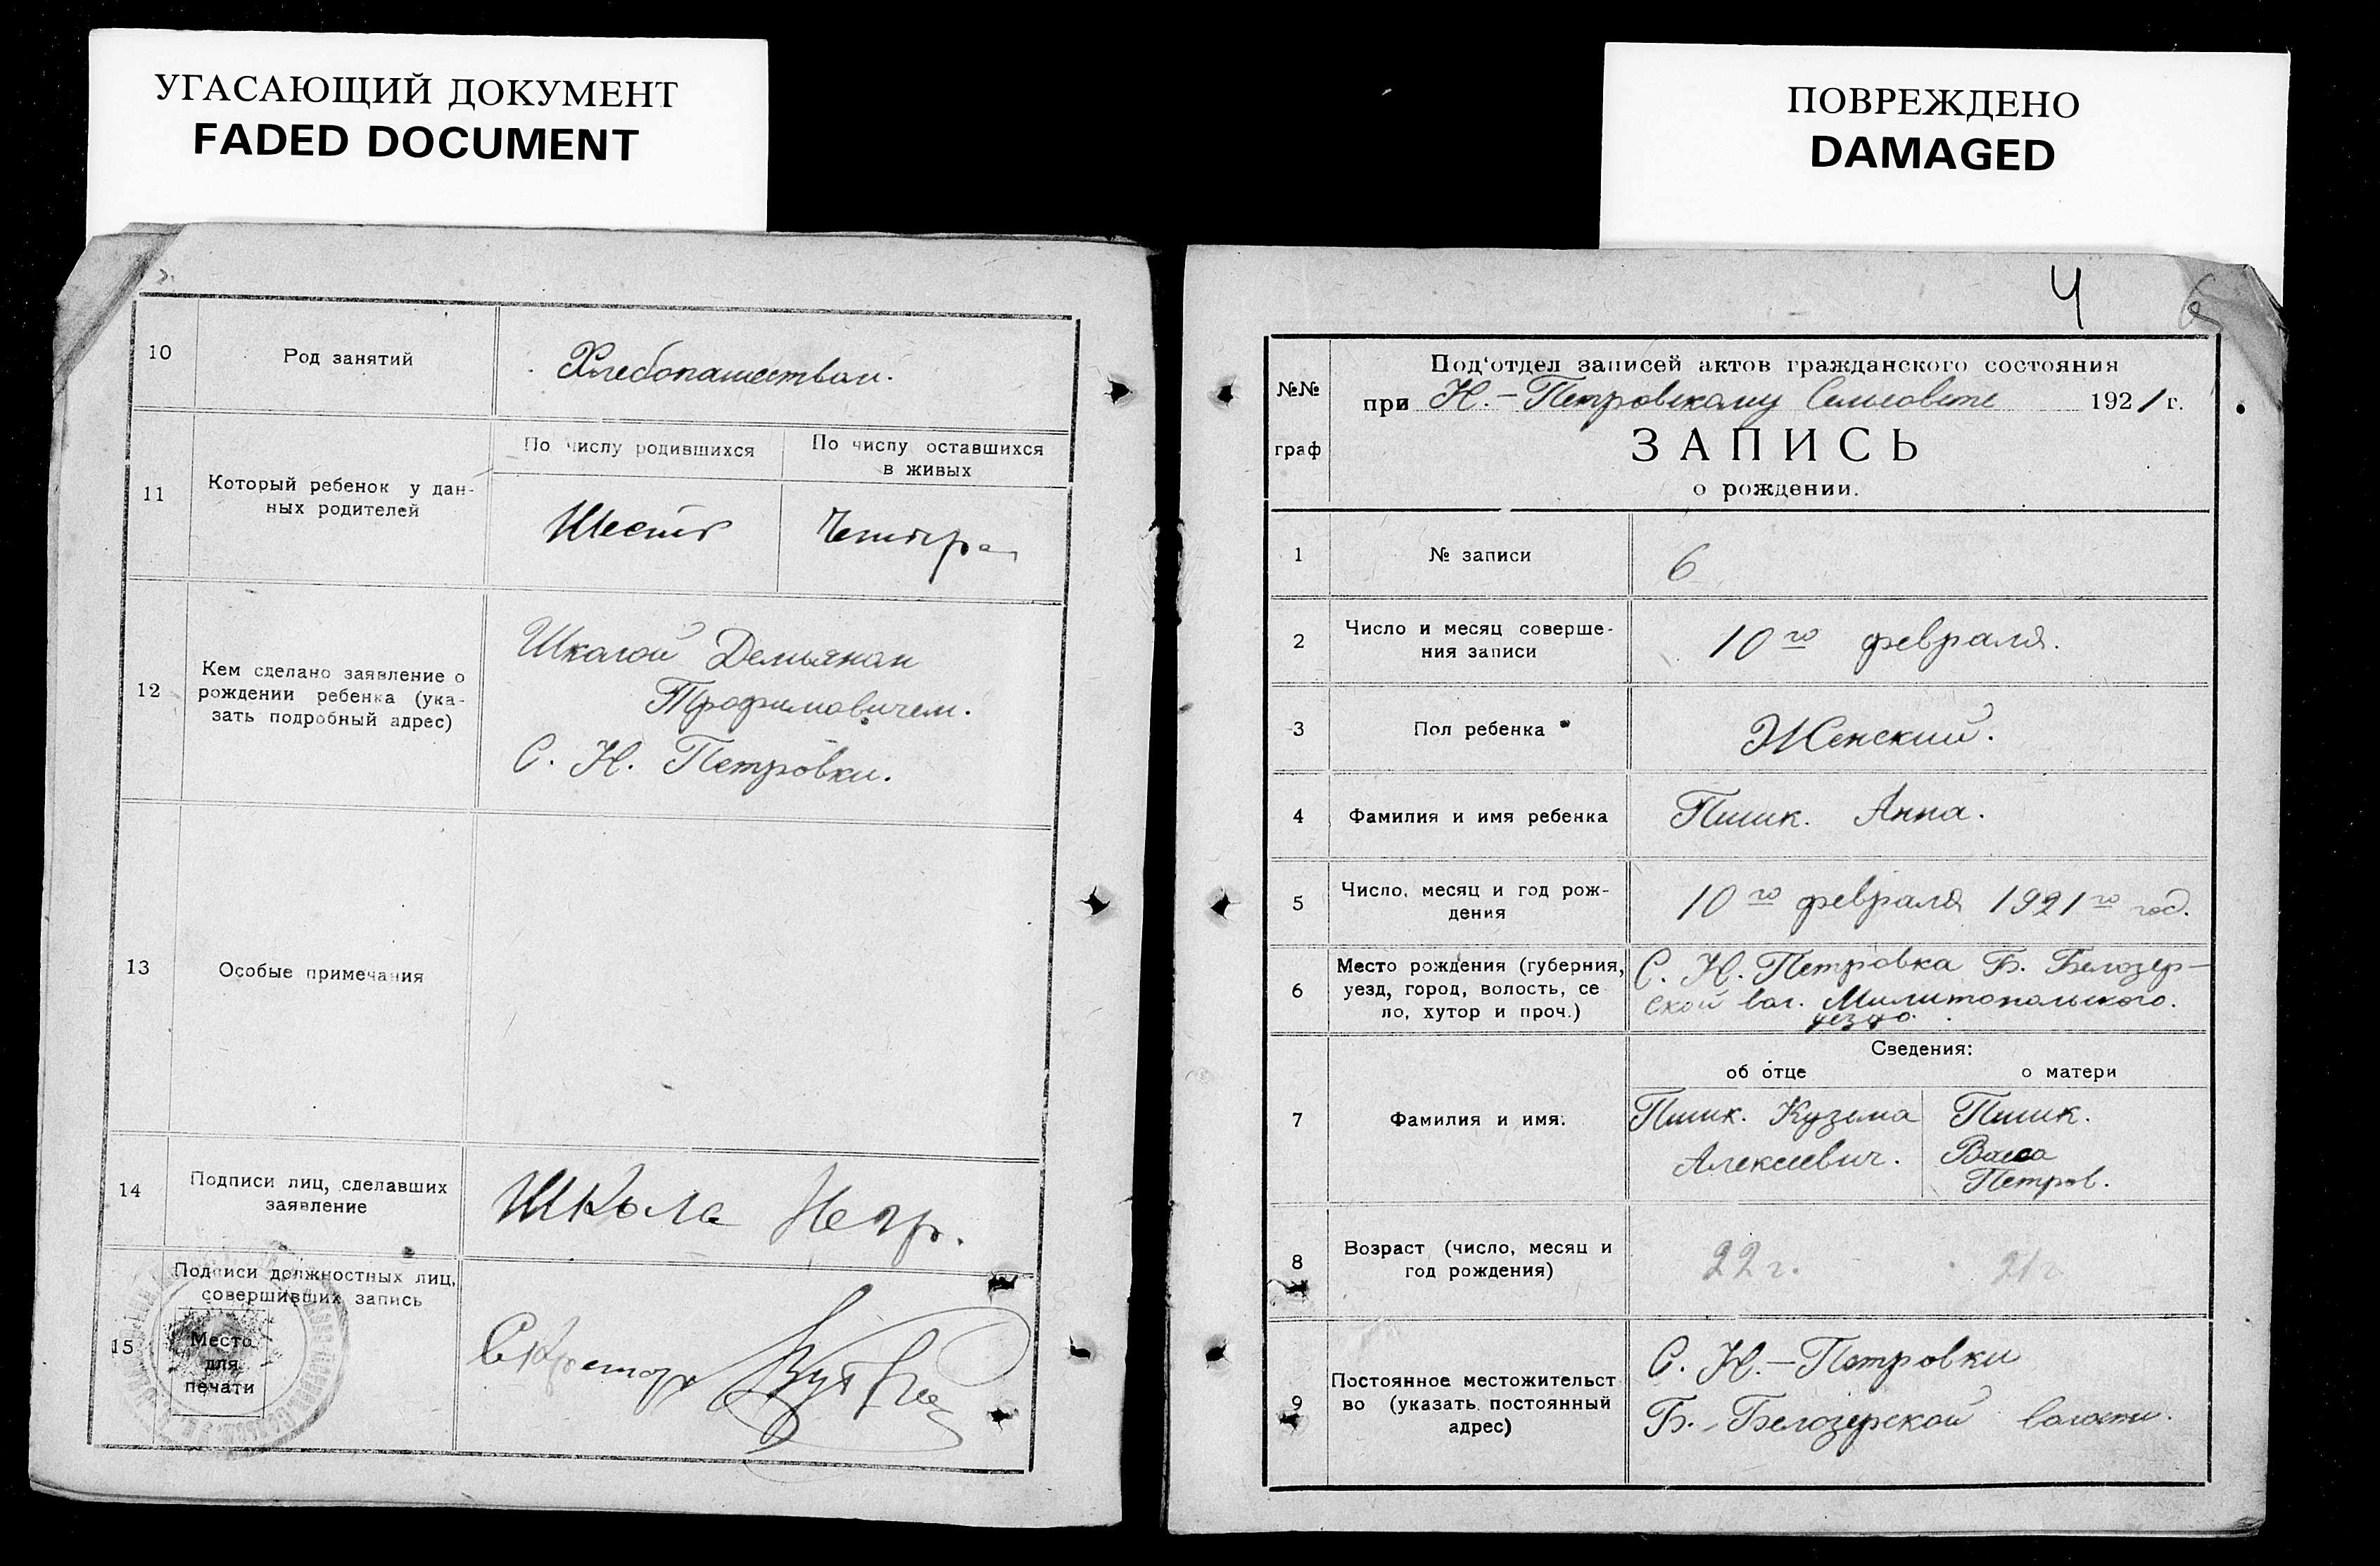 УГАСАЮЩИЙ ДОКУМЕНТ
FADED DOCUMENT
ПОВРЕЖДЕНО
DAMAGED
10
Род занятий
Хлебопашеством.
11
Который ребенок у дан-
ных родителей
По числу родившихся
По числу оставшихся
в живых
Шесть
12
Кем сделано заявление о
рождении ребенка (ука-
зать подробный адрес)
Шкалой Демьяном
Трофимовичем.
С. Н. Петровки.
13
Особые примечания
14
Подписи лиц, сделавших
заявление
Школа Негр.
15
Подписи должностных лиц,
совершивших запись
Место
для
печати
Секретарь
4
6
№№
граф
Под‘отдел записей актов гражданского состояния
при Н.-Петровскому Сельсовете 1921 г.
ЗАПИСЬ
о рождении.
1
№ записи
6
2
Число и месяц соверше-
ния записи
10го февраля.
3
Пол ребенка
Женский.
4
Фамилия и имя ребенка
Пшик. Анна.
5
Число, месяц и год рож-
дения
10го февраля 1921го год.
6
Место рождения (губерния,
уезд, город, волость, се
ло, хутор и проч.)
С. Н. Петровка Б. Белозер-
ской вол. Милитопольского.
уездо.
Сведения:
об отце
о матери
7
Фамилия и имя.
Пшик. Кузьма
Алексеевич.
Пшик.
Васса
Петров.
8
Возраст (число, месяц и
год рождения)
22 г.
21 г
9
Постоянное местожительст
во (указать постоянный
адрес)
С. Н.-Петровки
Б.-Белозерской волости.